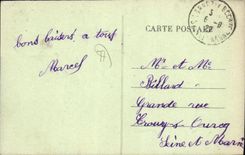 CARTE POSTALE
bons baisers à tous
Marcel
Mr et Me
Billard
Grande rue
Crouy-s-Ourcq
Seine et Marne